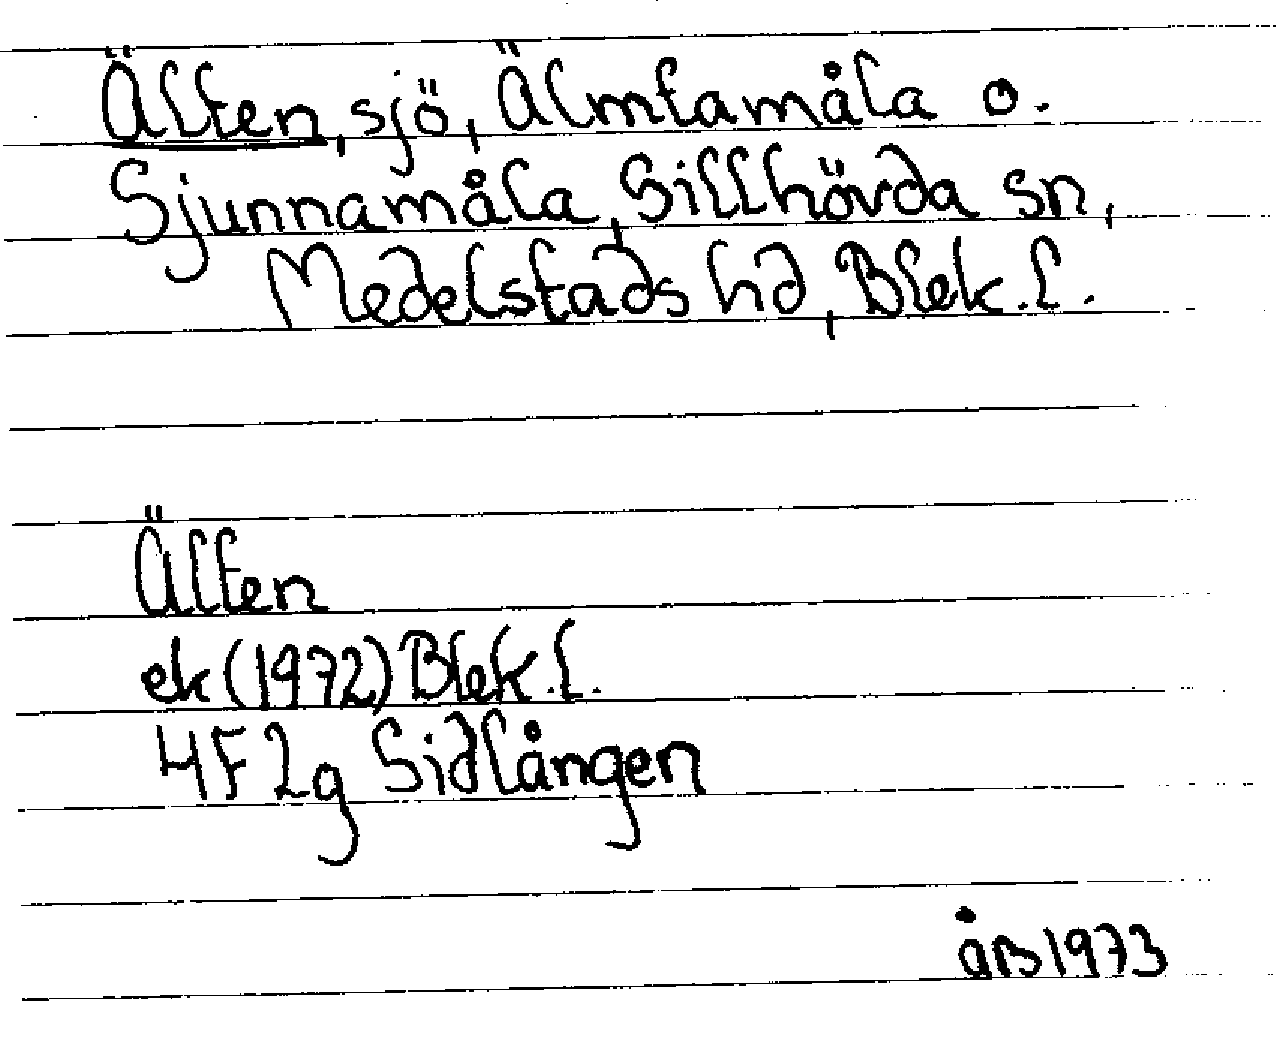 Älten, sjö, Älmtamåla o.
Sjunnamåla, Sillhövda sn,
Medelstads hd, Blek. l.
Älten
ek (1972) Blek. l.
4F2g Sidlången
åB 1973